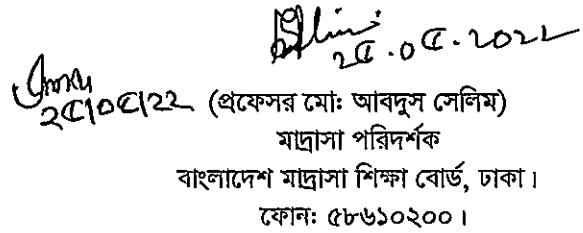 ২৫.০৫.২০২২
২৫/০৫/২২ (প্রফেসর মো: আবদুস সেলিম)
মাদ্রাসা পরিদর্শক
বাংলাদেশ মাদ্রাসা শিক্ষা বোর্ড, ঢাকা।
ফোন: ৫৮৬১০২০০।